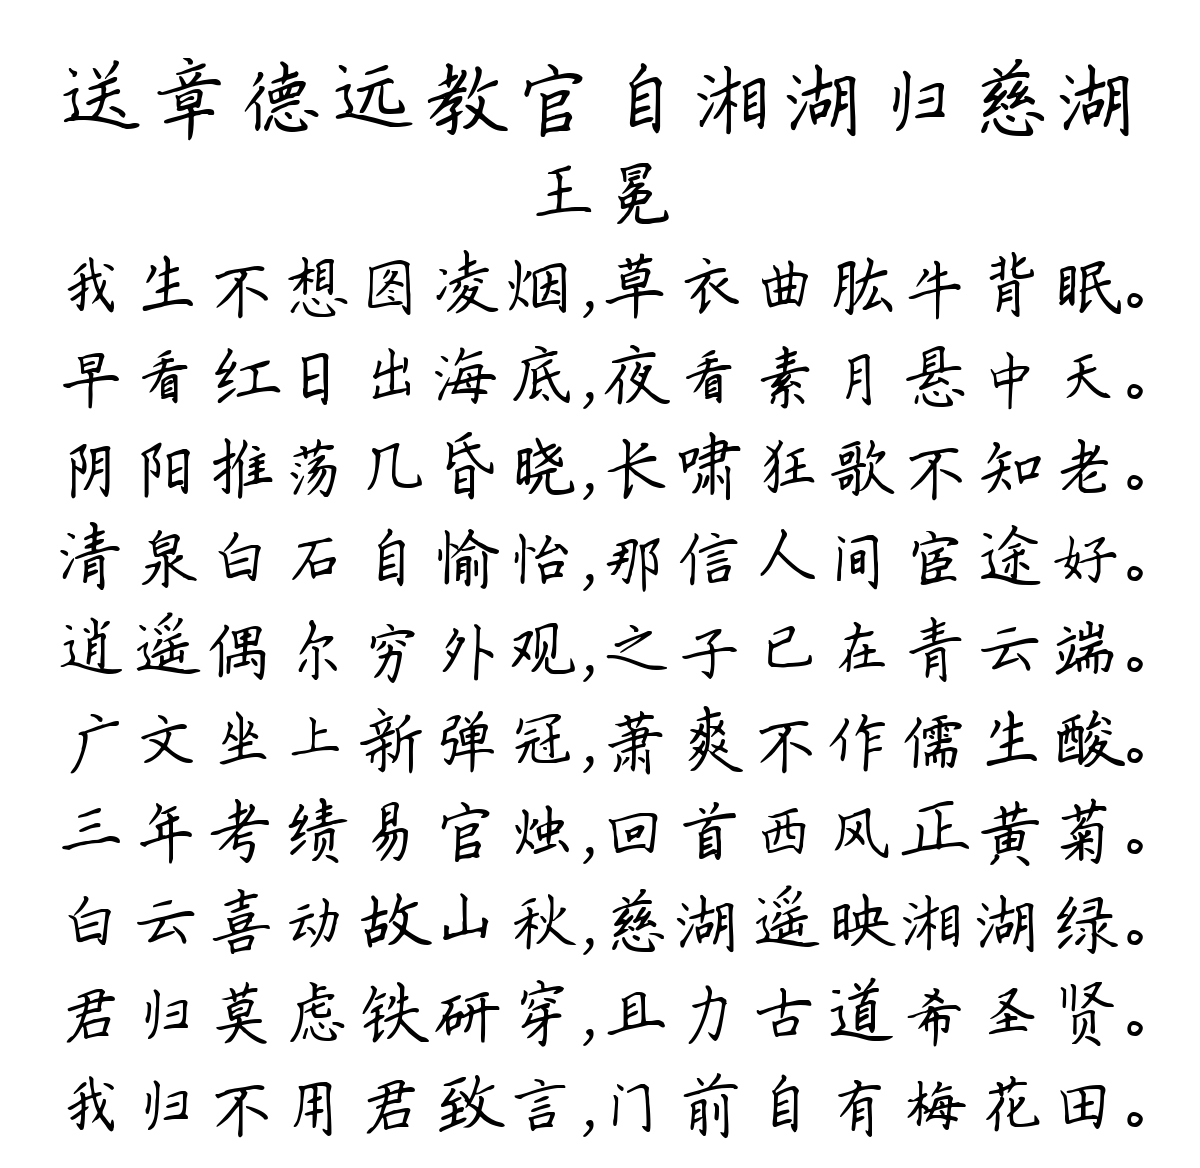 送章德远教官自湘湖归慈湖
王冕
我生不想图凌烟,草衣曲肱牛背眠。
早看红日出海底,夜看素月悬中天。
阴阳推荡几昏晓,长啸狂歌不知老。
清泉白石自愉怡,那信人间宦途好。
逍遥偶尔穷外观,之子已在青云端。
广文坐上新弹冠,萧爽不作儒生酸。
三年考绩易官烛,回首西风正黄菊。
白云喜动故山秋,慈湖遥映湘湖绿。
君归莫虑铁研穿,且力古道希圣贤。
我归不用君致言,门前自有梅花田。